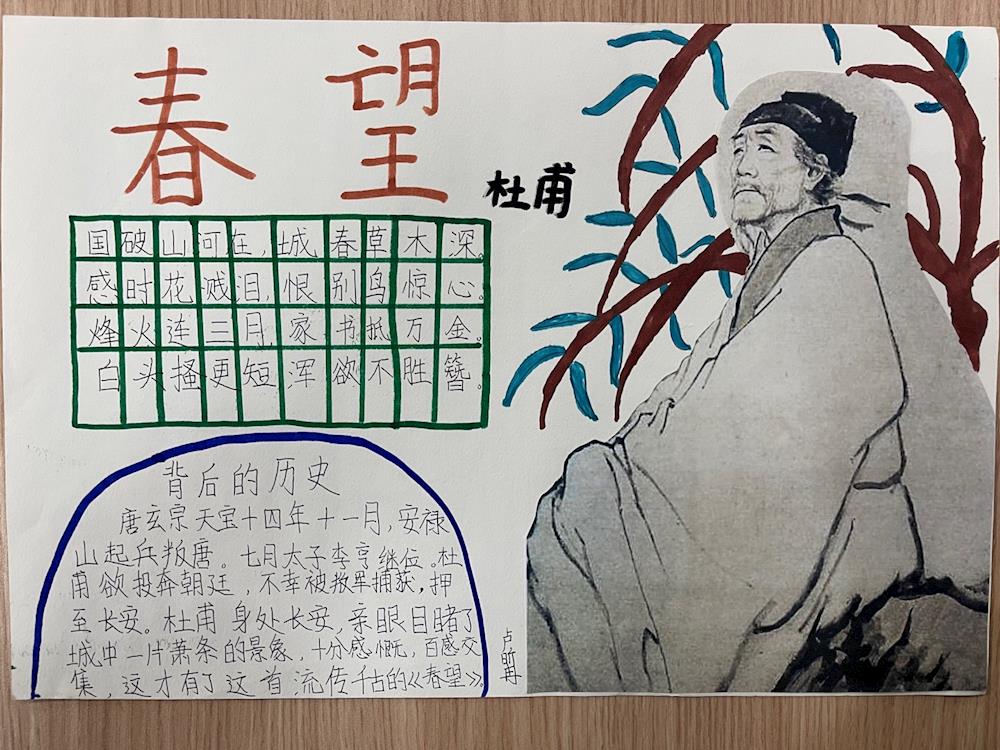 春望
杜甫
国破山河在，城春草木深。
感时花溅泪，恨别鸟惊心。
烽火连三月，家书抵万金。
白头搔更短，浑欲不胜簪。
背后的历史
唐玄宗天宝十四年十一月，安禄
山起兵叛唐。七月太子李亨继位。杜
甫欲投奔朝廷，不幸被敌军捕获，押
至长安。杜甫身处长安，亲眼目睹了
城中一片萧条的景象，十分感慨，百感交
集，这才有了这首流传千古的《春望》。
卢